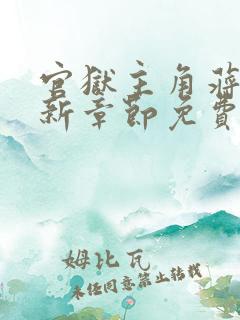 官獄主角蔣
新章節免費
姆比瓦
未经同意禁止转载